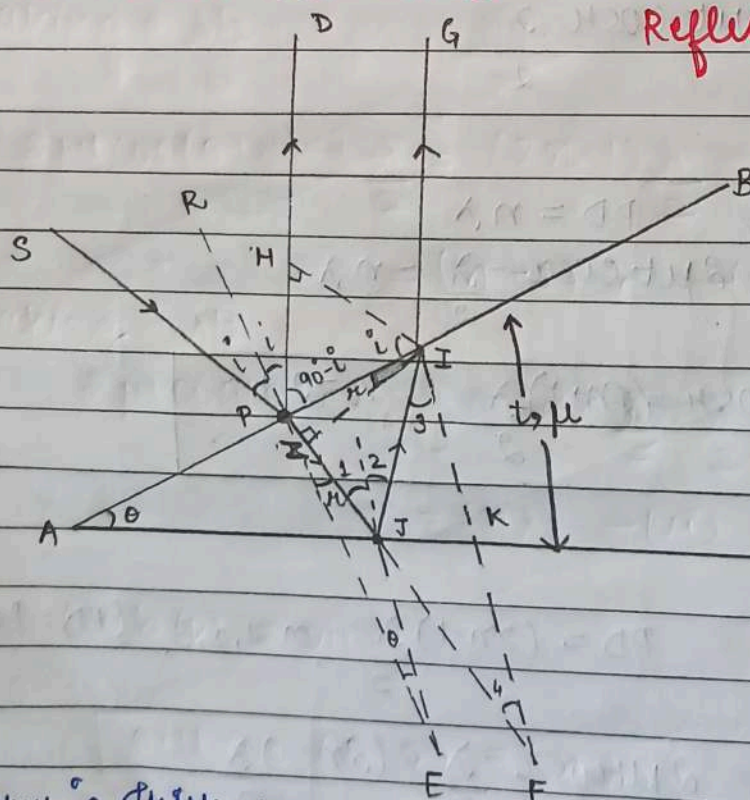 Refle
D
G
B
R
S
H
i
i
i
90-i
I
r
P
Z
t, μ
3
1
2
r
A
θ
J
K
θ
4
E
F